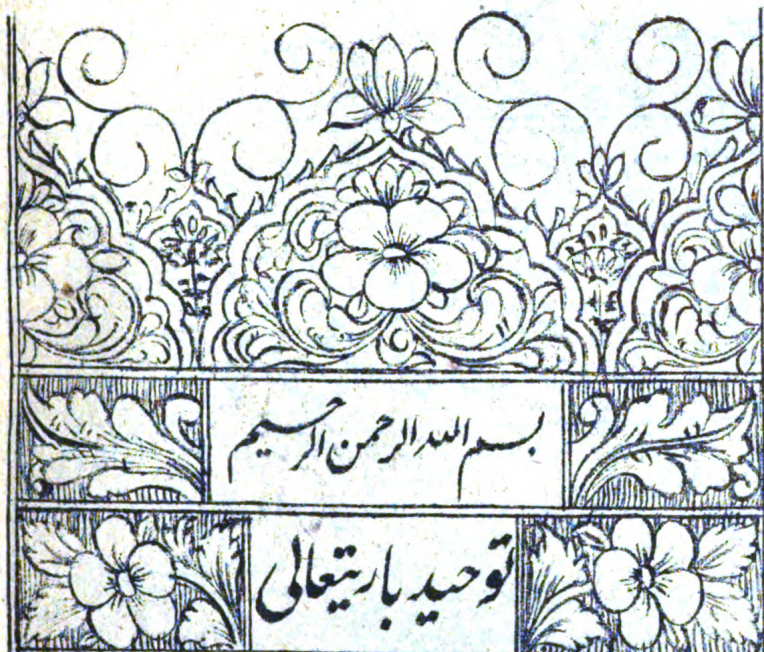 بسم الله الرحمن الرحیم
توحید باریتعالی